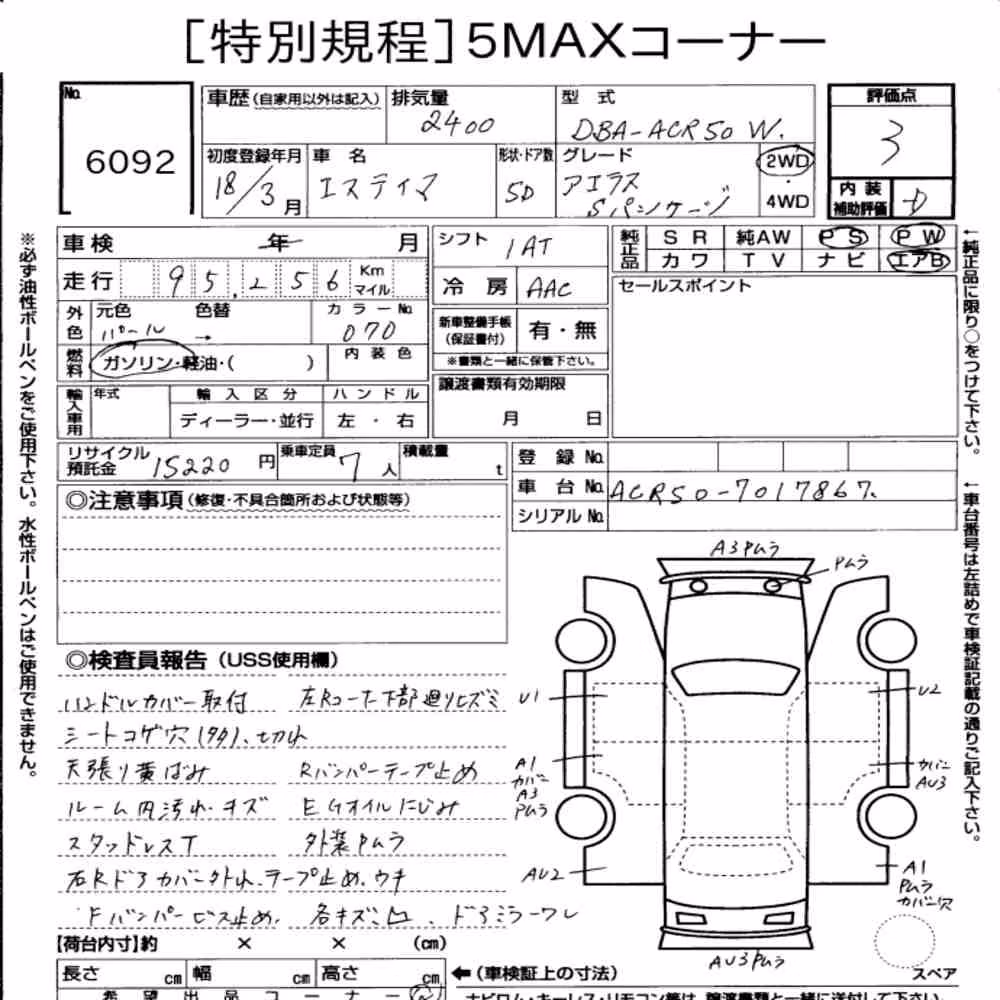 [特別規程]5MAXコーナー
No. 6092
車歴(自家用以外は記入) 排気量 2400 型式 DBA-ACR50W. 評価点 3
初度登録年月 18/3月 車名 エスティマ 形状・ドア数 5D グレード アエラス Sパッケージ 2WD・4WD 内装補助評価 D
※必ず油性ボールペンをご使用下さい。水性ボールペンはご使用できません。
車検 年 月
走行 95,256 Km マイル
外色 元色 パール 色替 → カラーNo. 070
燃料 ガソリン・軽油・( ) 内装色
輸入車用 年式 輸入区分 ディーラー・並行 ハンドル 左・右
シフト 1AT
冷房 AAC
新車整備手帳(保証書付) 有・無
※書類と一緒に保管下さい。
譲渡書類有効期限
月 日
純正品 SR 純AW PS PW
カワ TV ナビ エアB
セールスポイント
←純正品に限り○をつけて下さい。
リサイクル預託金 15220円 乗車定員 7人 積載量 t
登録No.
車台No. ACR50-7017867.
シリアルNo.
←車台番号は左詰めで車検証記載の通りご記入下さい。
◎注意事項(修復・不具合箇所および状態等)
◎検査員報告(USS使用欄)
ハンドルカバー取付 左Rコーナー下部廻りヒズミ
シートコゲ穴(タタ)、セカレ
天張り黄ばみ Rバンパーテープ止め
ルーム内汚れ・キズ EGオイルにじみ
スタッドレスT 外装Pムラ
右Rドアカバー外れ、テープ止め、ウキ
Fバンパービス止め、各キズ凹、ドアミラーワレ
A3Pムラ
Pムラ
U1
U2
A1
カバー
A3
Pムラ
カバー
AU3
AU2
A1
Pムラ
カバー穴
AU3Pムラ
スペア
【荷台内寸】約 × × (cm)
長さ cm 幅 cm 高さ cm ←(車検証上の寸法)
希望出品コーナー
ナビロム・キーレス・リモコン等は、譲渡書類と一緒に送付して下さい。